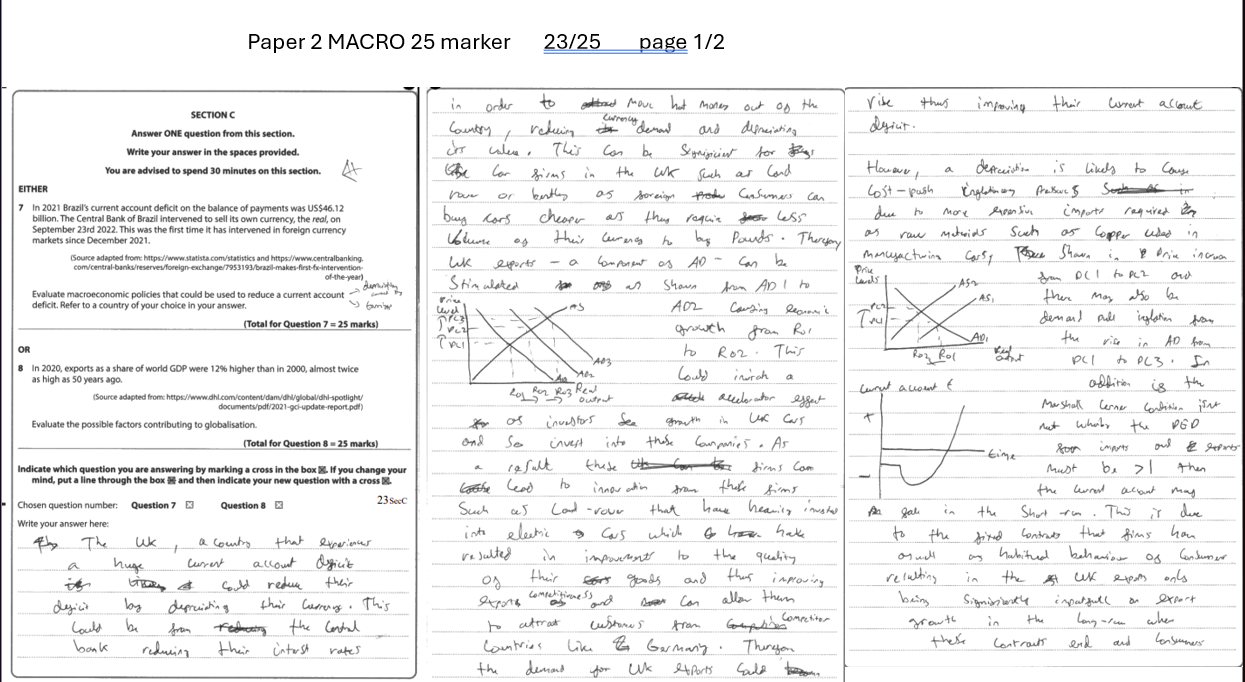 Paper 2 MACRO 25 marker 23/25 page 1/2
SECTION C
Answer ONE question from this section.
Write your answer in the spaces provided.
You are advised to spend 30 minutes on this section.
EITHER
7 In 2021 Brazil's current account deficit on the balance of payments was US$46.12
billion. The Central Bank of Brazil intervened to sell its own currency, the real, on
September 23rd 2022. This was the first time it has intervened in foreign currency
markets since December 2021.
(Source adapted from: https://www.statista.com/statistics and https://www.centralbanking.
com/central-banks/reserves/foreign-exchange/7953193/brazil-makes-first-fx-intervention-
of-the-year)
Evaluate macroeconomic policies that could be used to reduce a current account
deficit. Refer to a country of your choice in your answer.
(Total for Question 7 = 25 marks)
OR
8 In 2020, exports as a share of world GDP were 12% higher than in 2000, almost twice
as high as 50 years ago.
(Source adapted from: https://www.dhl.com/content/dam/dhl/global/dhl-spotlight/
documents/pdf/2021-gci-update-report.pdf)
Evaluate the possible factors contributing to globalisation.
(Total for Question 8 = 25 marks)
Indicate which question you are answering by marking a cross in the box ☒. If you change your
mind, put a line through the box and then indicate your new question with a cross ☒.
Chosen question number: Question 7 ☒ Question 8 ☒
23SecC
Write your answer here:
The UK, a country that experiences
a huge current account deficit
could reduce their
deficit by depreciating their currency. This
could be from the central
bank reducing their intrest rates
in order to move hot money out of the
country, reducing currency demand and depreciating
its value. This can be significant for
car firms in the UK such as Land
rover or bentley as foreign consumers can
buy cars cheaper as they require less
volume of their currency to buy Pounds. Therefore
UK exports - a component of AD - can be
Stimulated as shown from AD1 to
AD2 causing economic
growth from Ro1
to Ro2. This
could
accelerator effect
Price
level
PL3
PL2
PL1
AS
AD3
AD2
Ro1 Ro2 Ro3 Real
output
as investors see growth in UK cars
and so invest into these companies. As
a result these firms can
lead to innovation from these firms
Such as Land-rover that have heavily invested
into electric cars which have
resulted in improvements to the quality
of their goods and thus improving
exports competitiveness and can allow them
to attract customers from competitor
Countries like Germany. Therefore
the demand for UK exports could
rise thus improving their current account
deficit.
However, a depreciation is likely to cause
Cost-push inflationary pressures
due to more expensive imports required
as raw materials such as copper used in
manufacturing cars, shown in Price increase
from PL1 to PL2 and
there may also be
demand pull inflation from
the rise in AD from
PL1 to PL3. In
addition if the
Price
levels
PL2
PL1
AS2
AS1
AD1
Ro2 Ro1 Real
output
current account £
+
-
time
Marshall Lerner Condition isn't
met where the PED
imports and exports
must be >1 then
the current account may
fall in the short-run. This is due
to the fixed contracts that firms have
as well as habitual behaviour of consumers
resulting in the UK exports only
being significantly on export
growth in the long-run when
these contracts end and consumers